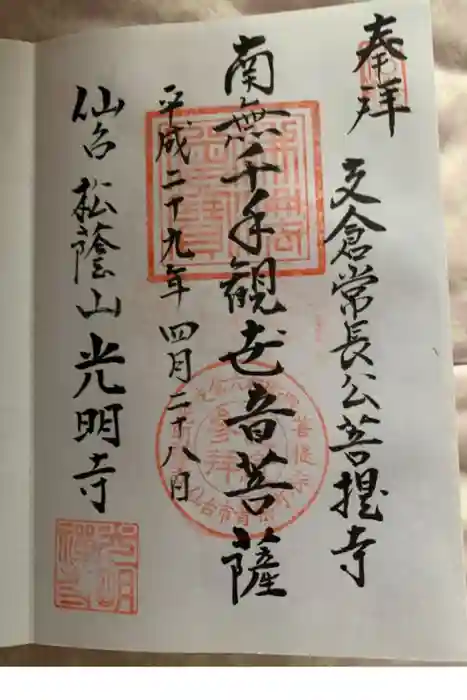 奉拝
支倉常長公菩提寺
南無千手観世音菩薩
平成二十九年四月二十八日
仙台松蔭山光明寺